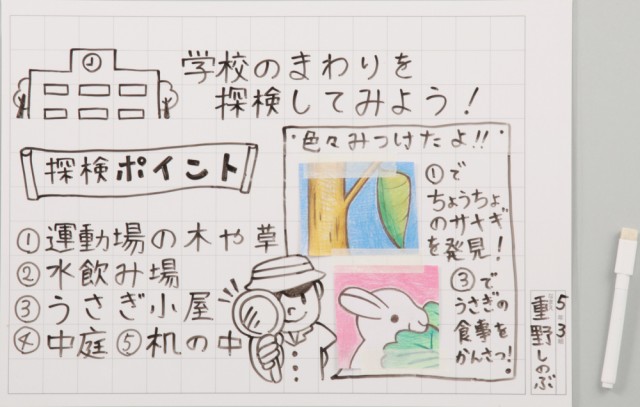 学校のまわりを
探検してみよう！
探検ポイント
①運動場の木や草
②水飲み場
③うさぎ小屋
④中庭 ⑤机の中
色々みつけたよ!!
①で
ちょうちょ
のサナギ
を発見！
③で
うさぎの
食事を
かんさつ！
5年3組
重野しのぶ